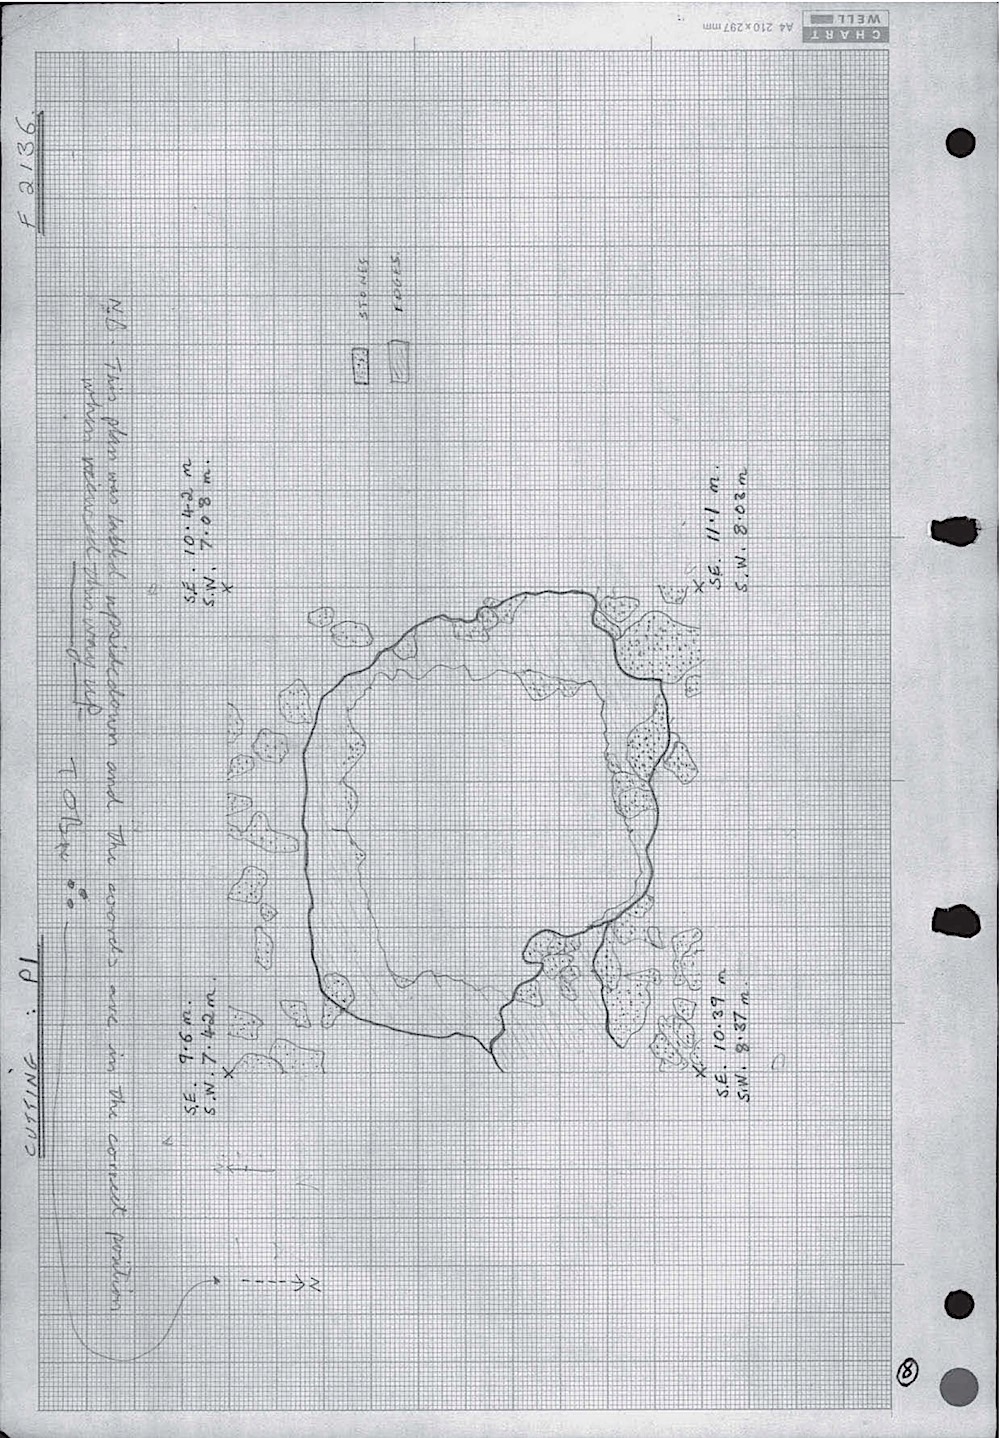 CHART
WELL
A4 210x297mm
F 2136
CUTTING : P1
N.B. This plan was labeled upsidedown and the words are in the correct position
when viewed this way up
STONES
EDGES.
S.E. 10.42 m
S.W. 7.08 m.
X
X
S.E. 11.1 m.
S.W. 8.03 m
S.E. 9.6 m.
S.W. 7.42 m.
X
X
S.E. 10.39 m
S.W. 8.37 m.
N
8